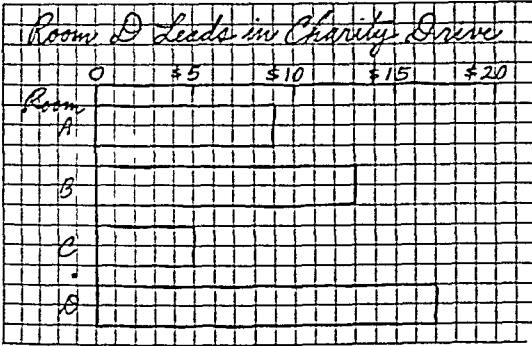 Room D Leads in Charity Drive
0 $5 $10 $15 $20
Room
A
B
C
D